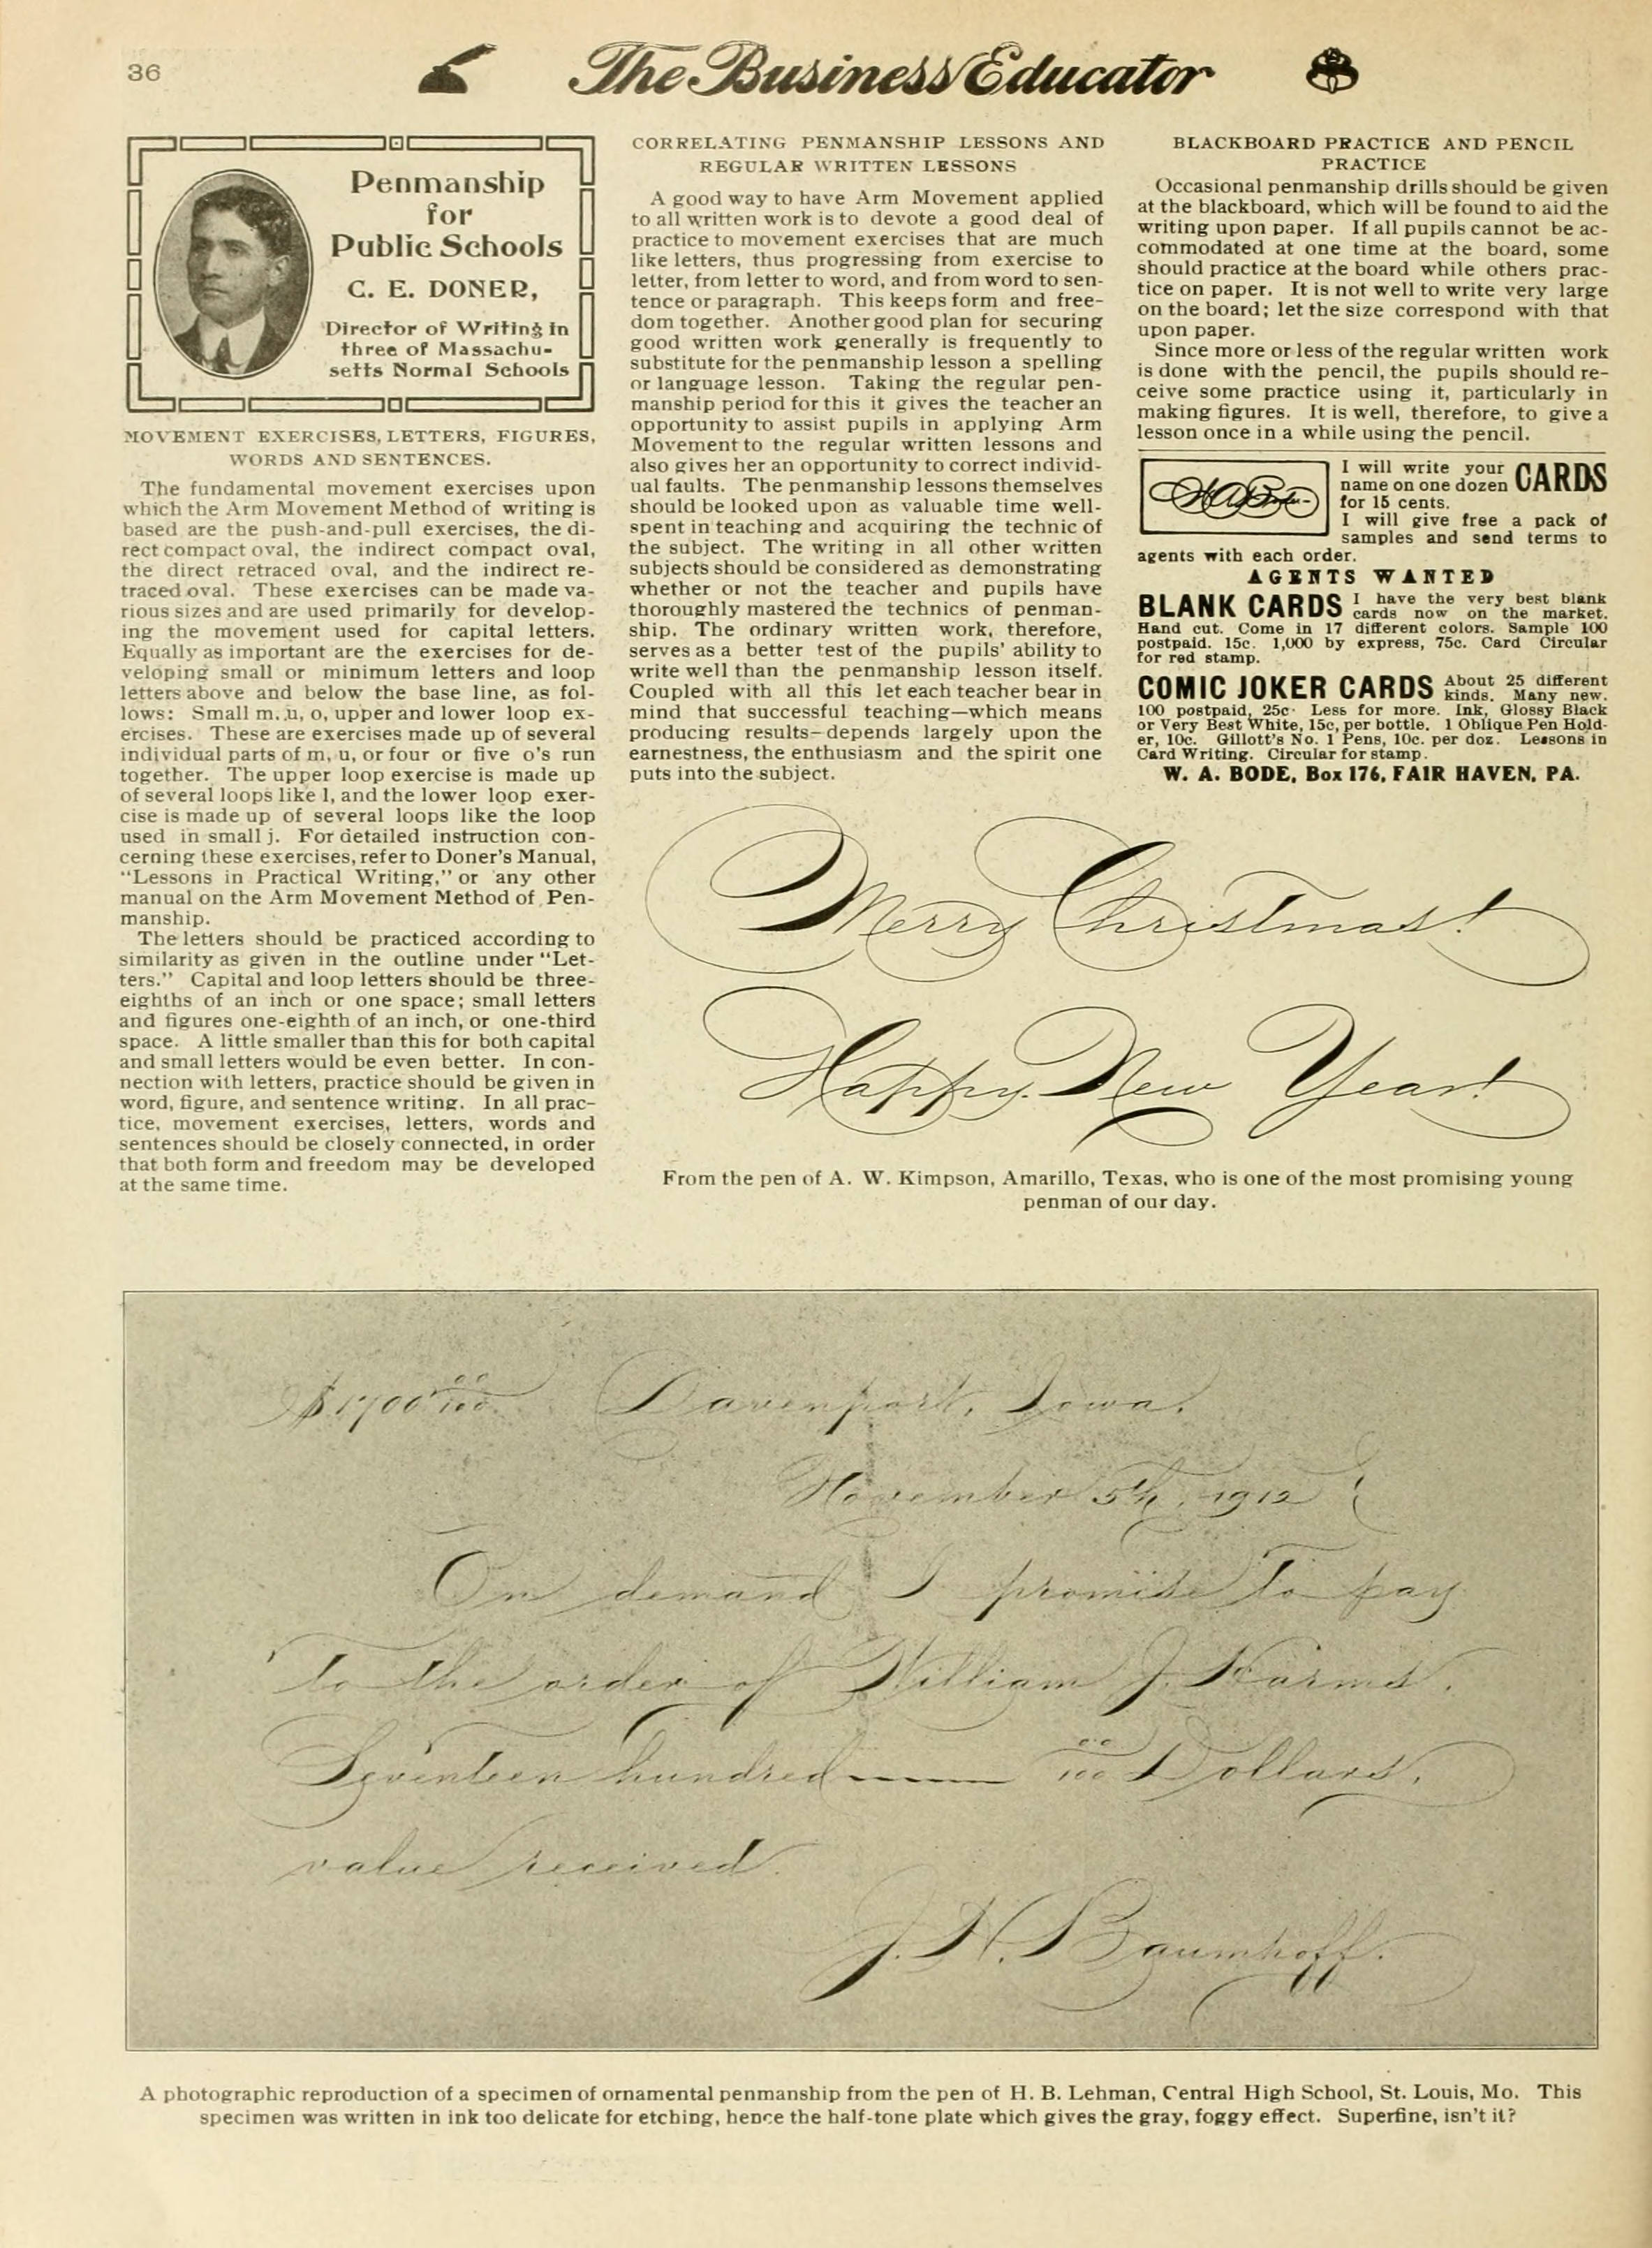 36
The Business Educator
Penmanship
for
Public Schools
C. E. DONER,
Director of Writing in
three of Massachu-
setts Normal Schools
MOVEMENT EXERCISES, LETTERS, FIGURES,
WORDS AND SENTENCES.
The fundamental movement exercises upon
which the Arm Movement Method of writing is
based are the push-and-pull exercises, the di-
rect compact oval, the indirect compact oval,
the direct retraced oval, and the indirect re-
traced oval. These exercises can be made va-
rious sizes and are used primarily for develop-
ing the movement used for capital letters.
Equally as important are the exercises for de-
veloping small or minimum letters and loop
letters above and below the base line, as fol-
lows: Small m, u, o, upper and lower loop ex-
ercises. These are exercises made up of several
individual parts of m, u, or four or five o's run
together. The upper loop exercise is made up
of several loops like l, and the lower loop exer-
cise is made up of several loops like the loop
used in small j. For detailed instruction con-
cerning these exercises, refer to Doner's Manual,
"Lessons in Practical Writing," or any other
manual on the Arm Movement Method of Pen-
manship.
The letters should be practiced according to
similarity as given in the outline under "Let-
ters." Capital and loop letters should be three-
eighths of an inch or one space; small letters
and figures one-eighth of an inch, or one-third
space. A little smaller than this for both capital
and small letters would be even better. In con-
nection with letters, practice should be given in
word, figure, and sentence writing. In all prac-
tice, movement exercises, letters, words and
sentences should be closely connected, in order
that both form and freedom may be developed
at the same time.
CORRELATING PENMANSHIP LESSONS AND
REGULAR WRITTEN LESSONS
A good way to have Arm Movement applied
to all written work is to devote a good deal of
practice to movement exercises that are much
like letters, thus progressing from exercise to
letter, from letter to word, and from word to sen-
tence or paragraph. This keeps form and free-
dom together. Another good plan for securing
good written work generally is frequently to
substitute for the penmanship lesson a spelling
or language lesson. Taking the regular pen-
manship period for this it gives the teacher an
opportunity to assist pupils in applying Arm
Movement to the regular written lessons and
also gives her an opportunity to correct individ-
ual faults. The penmanship lessons themselves
should be looked upon as valuable time well-
spent in teaching and acquiring the technic of
the subject. The writing in all other written
subjects should be considered as demonstrating
whether or not the teacher and pupils have
thoroughly mastered the technics of penman-
ship. The ordinary written work, therefore,
serves as a better test of the pupils' ability to
write well than the penmanship lesson itself.
Coupled with all this let each teacher bear in
mind that successful teaching—which means
producing results—depends largely upon the
earnestness, the enthusiasm and the spirit one
puts into the subject.
BLACKBOARD PRACTICE AND PENCIL
PRACTICE
Occasional penmanship drills should be given
at the blackboard, which will be found to aid the
writing upon paper. If all pupils cannot be ac-
commodated at one time at the board, some
should practice at the board while others prac-
tice on paper. It is not well to write very large
on the board; let the size correspond with that
upon paper.
Since more or less of the regular written work
is done with the pencil, the pupils should re-
ceive some practice using it, particularly in
making figures. It is well, therefore, to give a
lesson once in a while using the pencil.
W. A. Bode
I will write your CARDS
name on one dozen
for 15 cents.
I will give free a pack of
samples and send terms to
agents with each order.
AGENTS WANTED
BLANK CARDS I have the very best blank
cards now on the market.
Hand cut. Come in 17 different colors. Sample 100
postpaid. 15c. 1,000 by express, 75c. Card Circular
for red stamp.
COMIC JOKER CARDS About 25 different
kinds. Many new.
100 postpaid, 25c. Less for more. Ink, Glossy Black
or Very Best White, 15c, per bottle. 1 Oblique Pen Hold-
er, 10c. Gillott's No. 1 Pens, 10c. per doz. Lessons in
Card Writing. Circular for stamp.
W. A. BODE, Box 176, FAIR HAVEN, PA.
Merry Christmas!
Happy New Year!
From the pen of A. W. Kimpson, Amarillo, Texas, who is one of the most promising young
penman of our day.
$1700 00/100. Davenport, Iowa.
November 5th, 1912
On demand I promise to pay
to the order of William J. Harms.
Seventeen hundred —— 00/100 Dollars,
value received.
J. H. Baumhoff.
A photographic reproduction of a specimen of ornamental penmanship from the pen of H. B. Lehman, Central High School, St. Louis, Mo. This
specimen was written in ink too delicate for etching, hence the half-tone plate which gives the gray, foggy effect. Superfine, isn't it?